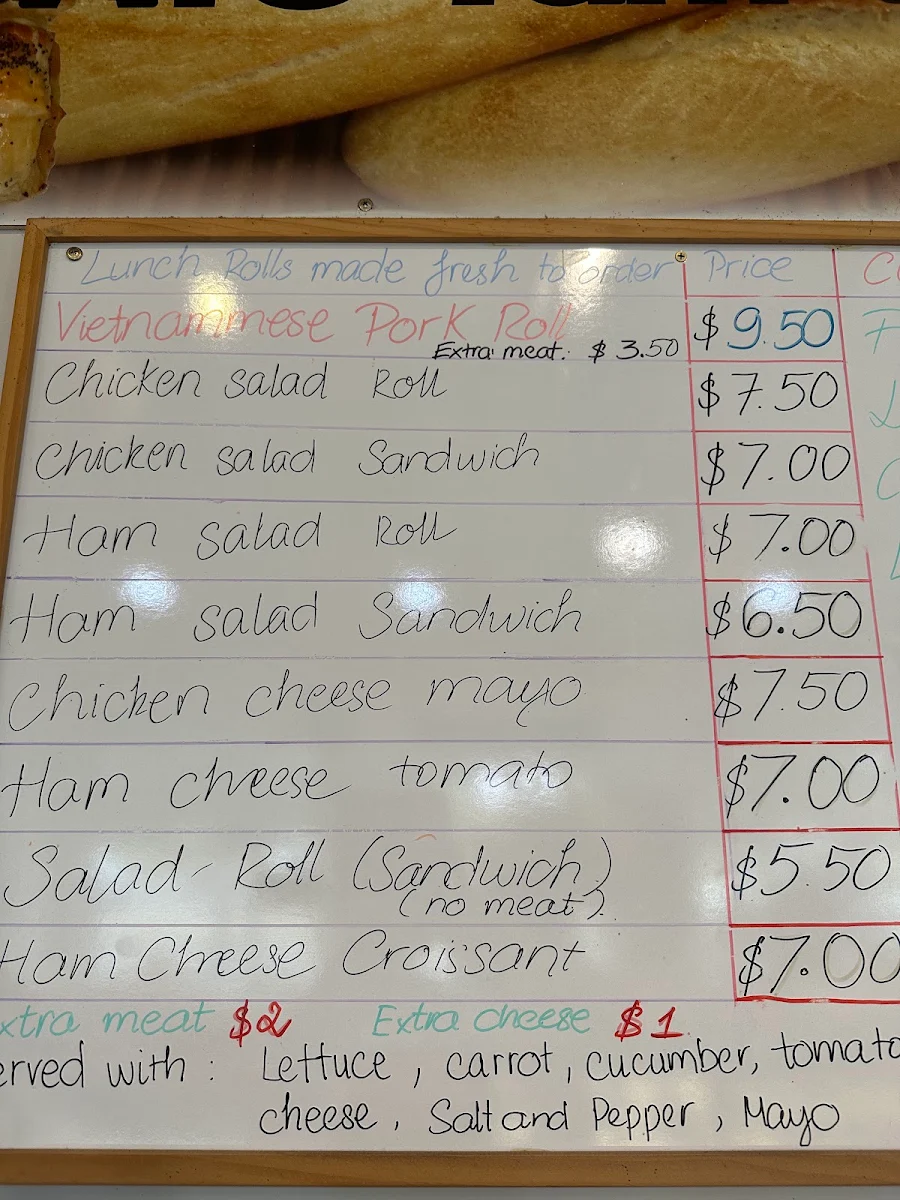 Lunch Rolls made fresh to order Price
Vietnammese Pork Roll $9.50
Extra meat. $3.50
Chicken salad Roll $7.50
Chicken salad Sandwich $7.00
Ham salad Roll $7.00
Ham salad Sandwich $6.50
Chicken cheese mayo $7.50
Ham cheese tomato $7.00
Salad- Roll (Sandwich) $5.50
(no meat).
Ham Cheese Croissant $7.00
xtra meat $2 Extra cheese $1
erved with : Lettuce, carrot, cucumber, tomato
cheese, Salt and Pepper, Mayo